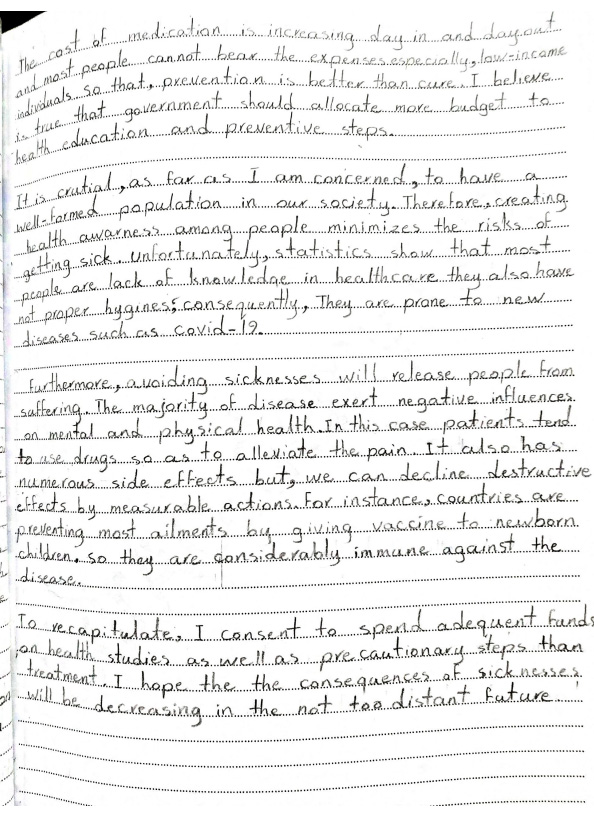 The cost of medication is increasing day in and day out
and most people cannot bear the expenses especially, low-income
individuals so that, prevention is better than cure. I believe
is true that government should allocate more budget to
health education and preventive steps.
It is crutial, as far as I am concerned, to have a
well-formed population in our society. Therefore, creating
health awarness among people minimizes the risks of
getting sick. Unfortunately, statistics show that most
people are lack of knowledge in healthcare they also have
not proper hygines; consequently, They are prone to new
diseases such as covid-19.
Furthermore, avoiding sicknesses will release people from
suffering. The majority of disease exert negative influences
on mental and physical health. In this case patients tend
to use drugs so as to alleviate the pain. It also has
numerous side effects but, we can decline destructive
effects by measurable actions. For instance, countries are
preventing most ailments by giving vaccine to newborn
children. So they are considerably immune against the
disease.
To recapitulate, I consent to spend adequent funds
on health studies as well as precautionary steps than
treatment. I hope the the consequences of sicknesses
will be decreasing in the not too distant future